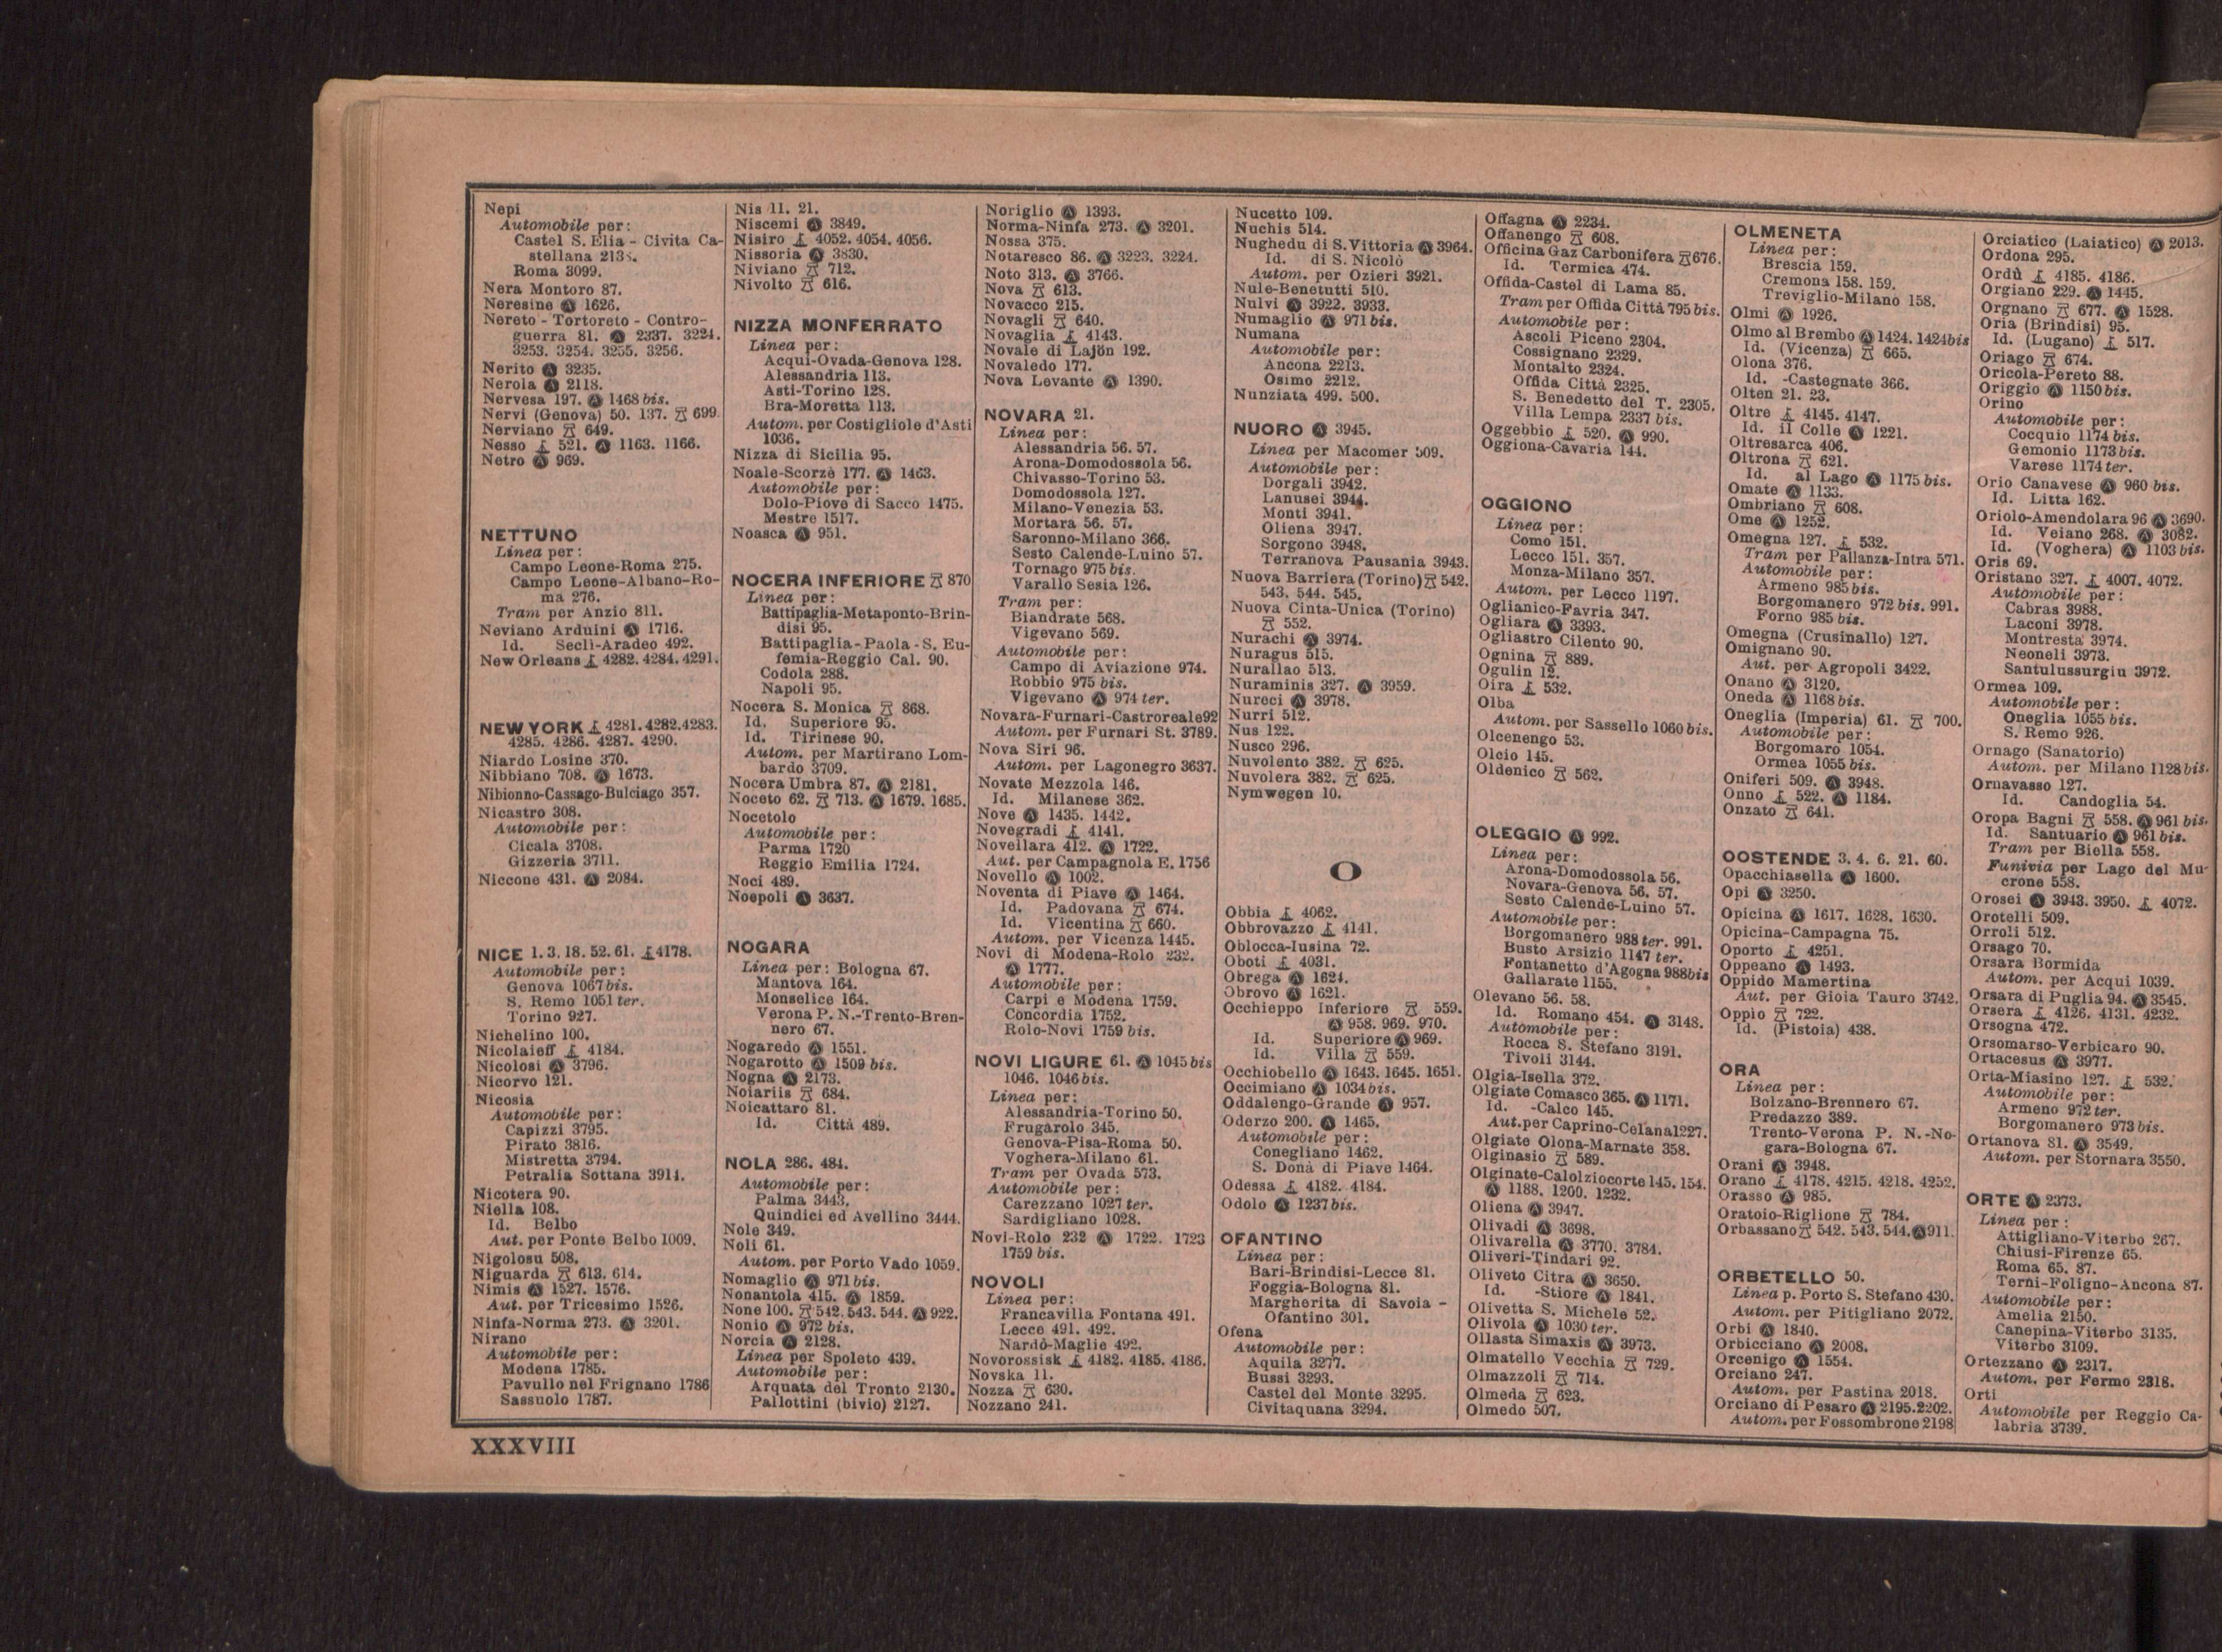 Nepi
Automobile per:
Castel S. Elia - Civita Ca-
stellana
Roma 3099.
Nera Montoro 87.
Neresine Ⓐ 1626.
Nereto - Tortoreto - Contro-
guerra 81. Ⓐ 2337. 3224.
3253. 3254. 3255. 3256.
Nerito Ⓐ 3235.
Nerola Ⓐ 2118.
Nervesa 197. Ⓐ 1468 bis.
Nervi (Genova) 50. 137. 699
Nerviano 649.
Nesso 521. Ⓐ 1163. 1166.
Netro Ⓐ 969.
NETTUNO
Linea per:
Campo Leone-Roma 275.
Campo Leone-Albano-Ro-
ma 276.
Tram per Anzio 811.
Neviano Arduini Ⓐ 1716.
Id. Secli-Aradeo 492.
New Orleans 4282. 4284. 4291.
NEW YORK 4281. 4282. 4283.
4285. 4286. 4287. 4290.
Niardo Losine 370.
Nibbiano 708. Ⓐ 1673.
Nibionno-Cassago-Bulciago 357.
Nicastro 308.
Automobile per:
Cicala 3708.
Gizzeria 3711.
Niccone 431. Ⓐ 2084.
NICE 1. 3. 18. 52. 61. 4178.
Automobile per:
Genova 1067 bis.
S. Remo 1051 ter.
Torino 927.
Nichelino 100.
Nicolaieff 4184.
Nicolosi Ⓐ 3796.
Nicorvo 121.
Nicosia
Automobile per:
Capizzi 3795.
Pirato 3816.
Mistretta 3794.
Petralia Sottana 3914.
Nicotera 90.
Niella 108.
Id. Belbo
Aut. per Ponte Belbo 1009.
Nigolosu 508.
Niguarda 613. 614.
Nimis Ⓐ 1527. 1576.
Aut. per Tricesimo 1526.
Ninfa-Norma 273. Ⓐ 3201.
Nirano
Automobile per:
Modena 1785.
Pavullo nel Frignano 1786
Sassuolo 1787.
Nis 11. 21.
Niscemi Ⓐ 3849.
Nisiro 4052. 4054. 4056.
Nissoria Ⓐ 3830.
Niviano 712.
Nivolto 616.
NIZZA MONFERRATO
Linea per:
Acqui-Ovada-Genova 128.
Alessandria 113.
Asti-Torino 128.
Bra-Moretta 113.
Autom. per Costigliole d'Asti
1036.
Nizza di Sicilia 95.
Noale-Scorzè 177. Ⓐ 1463.
Automobile per:
Dolo-Piove di Sacco 1475.
Mestre 1517.
Noasca Ⓐ 951.
NOCERA INFERIORE 870
Linea per:
Battipaglia-Metaponto-Brin-
disi 95.
Battipaglia - Paola - S. Eu-
femia-Reggio Cal. 90.
Codola 288.
Napoli 95.
Nocera S. Monica 868.
Id. Superiore 95.
Id. Tirinese 90.
Autom. per Martirano Lom-
bardo 3709.
Nocera Umbra 87. Ⓐ 2181.
Noceto 62. 713. Ⓐ 1679. 1685.
Nocetolo
Automobile per:
Parma 1720
Reggio Emilia 1724.
Noci 489.
Noepoli Ⓐ 3637.
NOGARA
Linea per: Bologna 67.
Mantova 164.
Monselice 164.
Verona P. N.-Trento-Bren-
nero 67.
Nogaredo Ⓐ 1551.
Nogarotto Ⓐ 1509 bis.
Nogna Ⓐ 2173.
Noiariis 684.
Noicattaro 81.
Id. Città 489.
NOLA 286. 484.
Automobile per:
Palma 3443.
Quindici ed Avellino 3444.
Nole 349.
Noli 61.
Autom. per Porto Vado 1059.
Nomaglio Ⓐ 971 bis.
Nonantola 415. Ⓐ 1859.
None 100. 542. 543. 544. Ⓐ 922.
Nonio Ⓐ 972 bis.
Norcia Ⓐ 2128.
Linea per Spoleto 439.
Automobile per:
Arquata del Tronto 2130.
Pallottini (bivio) 2127.
Noriglio Ⓐ 1393.
Norma-Ninfa 273. Ⓐ 3201.
Nossa 375.
Notaresco 86. Ⓐ 3223. 3224.
Noto 313. Ⓐ 3766.
Nova 613.
Novacco 215.
Novagli 640.
Novaglia 4143.
Novale di Lajön 192.
Novaledo 177.
Nova Levante Ⓐ 1390.
NOVARA 21.
Linea per:
Alessandria 56. 57.
Arona-Domodossola 56.
Chivasso-Torino 53.
Domodossola 127.
Milano-Venezia 53.
Mortara 56. 57.
Saronno-Milano 366.
Sesto Calende-Luino 57.
Tornago 975 bis.
Varallo Sesia 126.
Tram per:
Biandrate 568.
Vigevano 569.
Automobile per:
Campo di Aviazione 974.
Robbio 975 bis.
Vigevano Ⓐ 974 ter.
Novara-Furnari-Castroreale 92
Autom. per Furnari St. 3789.
Nova Siri 96.
Autom. per Lagonegro 3637.
Novate Mezzola 146.
Id. Milanese 362.
Nove Ⓐ 1435. 1442.
Novegradi 4141.
Novellara 412. Ⓐ 1722.
Aut. per Campagnola E. 1756
Novello Ⓐ 1002.
Noventa di Piave Ⓐ 1464.
Id. Padovana 674.
Id. Vicentina 660.
Autom. per Vicenza 1445.
Novi di Modena-Rolo 232.
Ⓐ 1777.
Automobile per:
Carpi e Modena 1759.
Concordia 1752.
Rolo-Novi 1759 bis.
NOVI LIGURE 61. Ⓐ 1045 bis
1046. 1046 bis.
Linea per:
Alessandria-Torino 50.
Frugarolo 345.
Genova-Pisa-Roma 50.
Voghera-Milano 61.
Tram per Ovada 573.
Automobile per:
Carezzano 1027 ter.
Sardigliano 1028.
Novi-Rolo 232 Ⓐ 1722. 1723
1759 bis.
NOVOLI
Linea per:
Francavilla Fontana 491.
Lecce 491. 492.
Nardò-Maglie 492.
Novorossisk 4182. 4185. 4186.
Novska 11.
Nozza 630.
Nozzano 241.
Nucetto 109.
Nuchis 514.
Nughedu di S. Vittoria Ⓐ 3964.
Id. di S. Nicolò
Autom. per Ozieri 3921.
Nule-Benetutti 510.
Nulvi Ⓐ 3922. 3933.
Numaglio Ⓐ 971 bis.
Numana
Automobile per:
Ancona 2213.
Osimo 2212.
Nunziata 499. 500.
NUORO Ⓐ 3945.
Linea per Macomer 509.
Automobile per:
Dorgali 3942.
Lanusei 3944.
Monti 3941.
Oliena 3947.
Sorgono 3948.
Terranova Pausania 3943.
Nuova Barriera (Torino) 542.
543. 544. 545.
Nuova Cinta-Unica (Torino)
552.
Nurachi Ⓐ 3974.
Nuragus 515.
Nurallao 513.
Nuraminis 327. Ⓐ 3959.
Nureci Ⓐ 3978.
Nurri 512.
Nus 122.
Nusco 296.
Nuvolento 382. 625.
Nuvolera 382. 625.
Nymwegen 10.
O
Obbia 4062.
Obbrovazzo 4141.
Oblocca-Iusina 72.
Oboti 4031.
Obrega Ⓐ 1624.
Obrovo Ⓐ 1621.
Occhieppo Inferiore 559.
Ⓐ 958. 969. 970.
Id. Superiore Ⓐ 969.
Id. Villa 559.
Occhiobello Ⓐ 1643. 1645. 1651.
Occimiano Ⓐ 1034 bis.
Oddalengo-Grande Ⓐ 957.
Oderzo 200. Ⓐ 1465.
Automobile per:
Conegliano 1462.
S. Donà di Piave 1464.
Odessa 4182. 4184.
Odolo Ⓐ 1237 bis.
OFANTINO
Linea per:
Bari-Brindisi-Lecce 81.
Foggia-Bologna 81.
Margherita di Savoia -
Ofantino 301.
Ofena
Automobile per:
Aquila 3277.
Bussi 3293.
Castel del Monte 3295.
Civitaquana 3294.
Offagna Ⓐ 2234.
Offanengo 608.
Officina Gaz Carbonifera 676.
Id. Termica 474.
Offida-Castel di Lama 85.
Tram per Offida Città 795 bis.
Automobile per:
Ascoli Piceno 2304.
Cossignano 2329.
Montalto 2324.
Offida Città 2325.
S. Benedetto del T. 2305.
Villa Lempa 2337 bis.
Oggebbio 520. Ⓐ 990.
Oggiona-Cavaria 144.
OGGIONO
Linea per:
Como 151.
Lecco 151. 357.
Monza-Milano 357.
Autom. per Lecco 1197.
Oglianico-Favria 347.
Ogliara Ⓐ 3393.
Ogliastro Cilento 90.
Ognina 889.
Ogulin 12.
Oira 532.
Olba
Autom. per Sassello 1060 bis.
Olcenengo 53.
Olcio 145.
Oldenico 562.
OLEGGIO Ⓐ 992.
Linea per:
Arona-Domodossola 56.
Novara-Genova 56. 57.
Sesto Calende-Luino 57.
Automobile per:
Borgomanero 988 ter. 991.
Busto Arsizio 1147 ter.
Fontanetto d'Agogna 988 bis
Gallarate 1155.
Olevano 56. 58.
Id. Romano 454. Ⓐ 3148.
Automobile per:
Rocca S. Stefano 3191.
Tivoli 3144.
Olgia-Isella 372.
Olgiate Comasco 365. Ⓐ 1171.
Id. -Calco 145.
Aut. per Caprino-Celana 1227.
Olgiate Olona-Marnate 358.
Olginasio 589.
Olginate-Calolziocorte 145. 154.
Ⓐ 1188. 1200. 1232.
Oliena Ⓐ 3947.
Olivadi Ⓐ 3698.
Olivarella Ⓐ 3770. 3784.
Oliveri-Tindari 92.
Oliveto Citra Ⓐ 3650.
Id. -Stiore Ⓐ 1841.
Olivetta S. Michele 52.
Olivola Ⓐ 1030 ter.
Ollasta Simaxis Ⓐ 3973.
Olmatello Vecchia 729.
Olmazzoli 714.
Olmeda 623.
Olmedo 507.
OLMENETA
Linea per:
Brescia 159.
Cremona 158. 159.
Treviglio-Milano 158.
Olmi Ⓐ 1926.
Olmo al Brembo Ⓐ 1424. 1424 bis
Id. (Vicenza) 665.
Olona 376.
Id. -Castegnate 366.
Olten 21. 23.
Oltre 4145. 4147.
Id. il Colle Ⓐ 1221.
Oltresarca 406.
Oltrona 621.
Id. al Lago Ⓐ 1175 bis.
Omate Ⓐ 1133.
Ombriano 608.
Ome Ⓐ 1252.
Omegna 127. 532.
Tram per Pallanza-Intra 571.
Automobile per:
Armeno 985 bis.
Borgomanero 972 bis. 991.
Forno 985 bis.
Omegna (Crusinallo) 127.
Omignano 90.
Aut. per Agropoli 3422.
Onano Ⓐ 3120.
Oneda Ⓐ 1168 bis.
Oneglia (Imperia) 61. 700.
Automobile per:
Borgomaro 1054.
Ormea 1055 bis.
Oniferi 509. Ⓐ 3948.
Onno 522. Ⓐ 1184.
Onzato 641.
OOSTENDE 3. 4. 6. 21. 60.
Opacchiasella Ⓐ 1600.
Opi Ⓐ 3250.
Opicina Ⓐ 1617. 1628. 1630.
Opicina-Campagna 75.
Oporto 4251.
Oppeano Ⓐ 1493.
Oppido Mamertina
Aut. per Gioia Tauro 3742.
Oppio 722.
Id. (Pistoia) 438.
ORA
Linea per:
Bolzano-Brennero 67.
Predazzo 389.
Trento-Verona P. N.-No-
gara-Bologna 67.
Orani Ⓐ 3948.
Orano 4178. 4215. 4218. 4252.
Orasso Ⓐ 985.
Oratoio-Riglione 784.
Orbassano 542. 543. 544. Ⓐ 911.
ORBETELLO 50.
Linea p. Porto S. Stefano 430.
Autom. per Pitigliano 2072.
Orbi Ⓐ 1840.
Orbicciano Ⓐ 2008.
Orcenigo Ⓐ 1554.
Orciano 247.
Autom. per Pastina 2018.
Orciano di Pesaro Ⓐ 2195. 2202.
Autom. per Fossombrone 2198
Orciatico (Laiatico) Ⓐ 2013.
Ordona 295.
Ordù 4185. 4186.
Orgiano 229. Ⓐ 1445.
Orgnano 677. Ⓐ 1528.
Oria (Brindisi) 95.
Id. (Lugano) 517.
Oriago 674.
Oricola-Pereto 88.
Origgio Ⓐ 1150 bis.
Orino
Automobile per:
Cocquio 1174 bis.
Gemonio 1173 bis.
Varese 1174 ter.
Orio Canavese Ⓐ 960 bis.
Id. Litta 162.
Oriolo-Amendolara 96 Ⓐ 3690.
Id. Veiano 268. Ⓐ 3082.
Id. (Voghera) Ⓐ 1103 bis.
Oris 69.
Oristano 327. 4007. 4072.
Automobile per:
Cabras 3988.
Laconi 3978.
Montresta 3974.
Neoneli 3973.
Santulussurgiu 3972.
Ormea 109.
Automobile per:
Oneglia 1055 bis.
S. Remo 926.
Ornago (Sanatorio)
Autom. per Milano 1128 bis.
Ornavasso 127.
Id. Candoglia 54.
Oropa Bagni 558. Ⓐ 961 bis.
Id. Santuario Ⓐ 961 bis.
Tram per Biella 558.
Funivia per Lago del Mu-
crone 558.
Orosei Ⓐ 3943. 3950. 4072.
Orotelli 509.
Orroli 512.
Orsago 70.
Orsara Bormida
Autom. per Acqui 1039.
Orsara di Puglia 94. Ⓐ 3545.
Orsera 4126. 4131. 4232.
Orsogna 472.
Orsomarso-Verbicaro 90.
Ortacesus Ⓐ 3977.
Orta-Miasino 127. 532.
Automobile per:
Armeno 972 ter.
Borgomanero 973 bis.
Ortanova 81. Ⓐ 3549.
Autom. per Stornara 3550.
ORTE Ⓐ 2373.
Linea per:
Attigliano-Viterbo 267.
Chiusi-Firenze 65.
Roma 65. 87.
Terni-Foligno-Ancona 87.
Automobile per:
Amelia 2150.
Canepina-Viterbo 3135.
Viterbo 3109.
Ortezzano Ⓐ 2317.
Autom. per Fermo 2318.
Orti
Automobile per Reggio Ca-
labria 3739.
XXXVIII